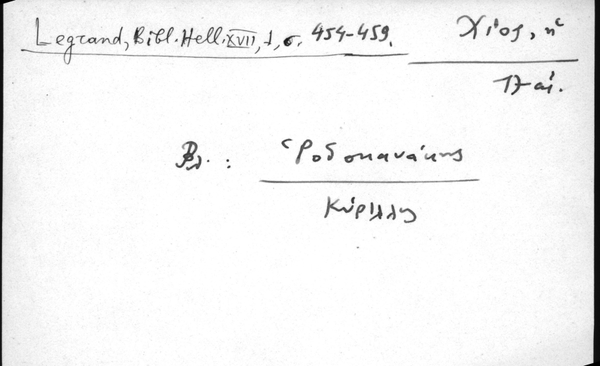 Legrand, Bibl. Hell. XVII, 1, σ. 454-459.
Χίος, ἡ
17 αἰ.
Βλ. : Ῥοδοκανάκης
Κύριλλος